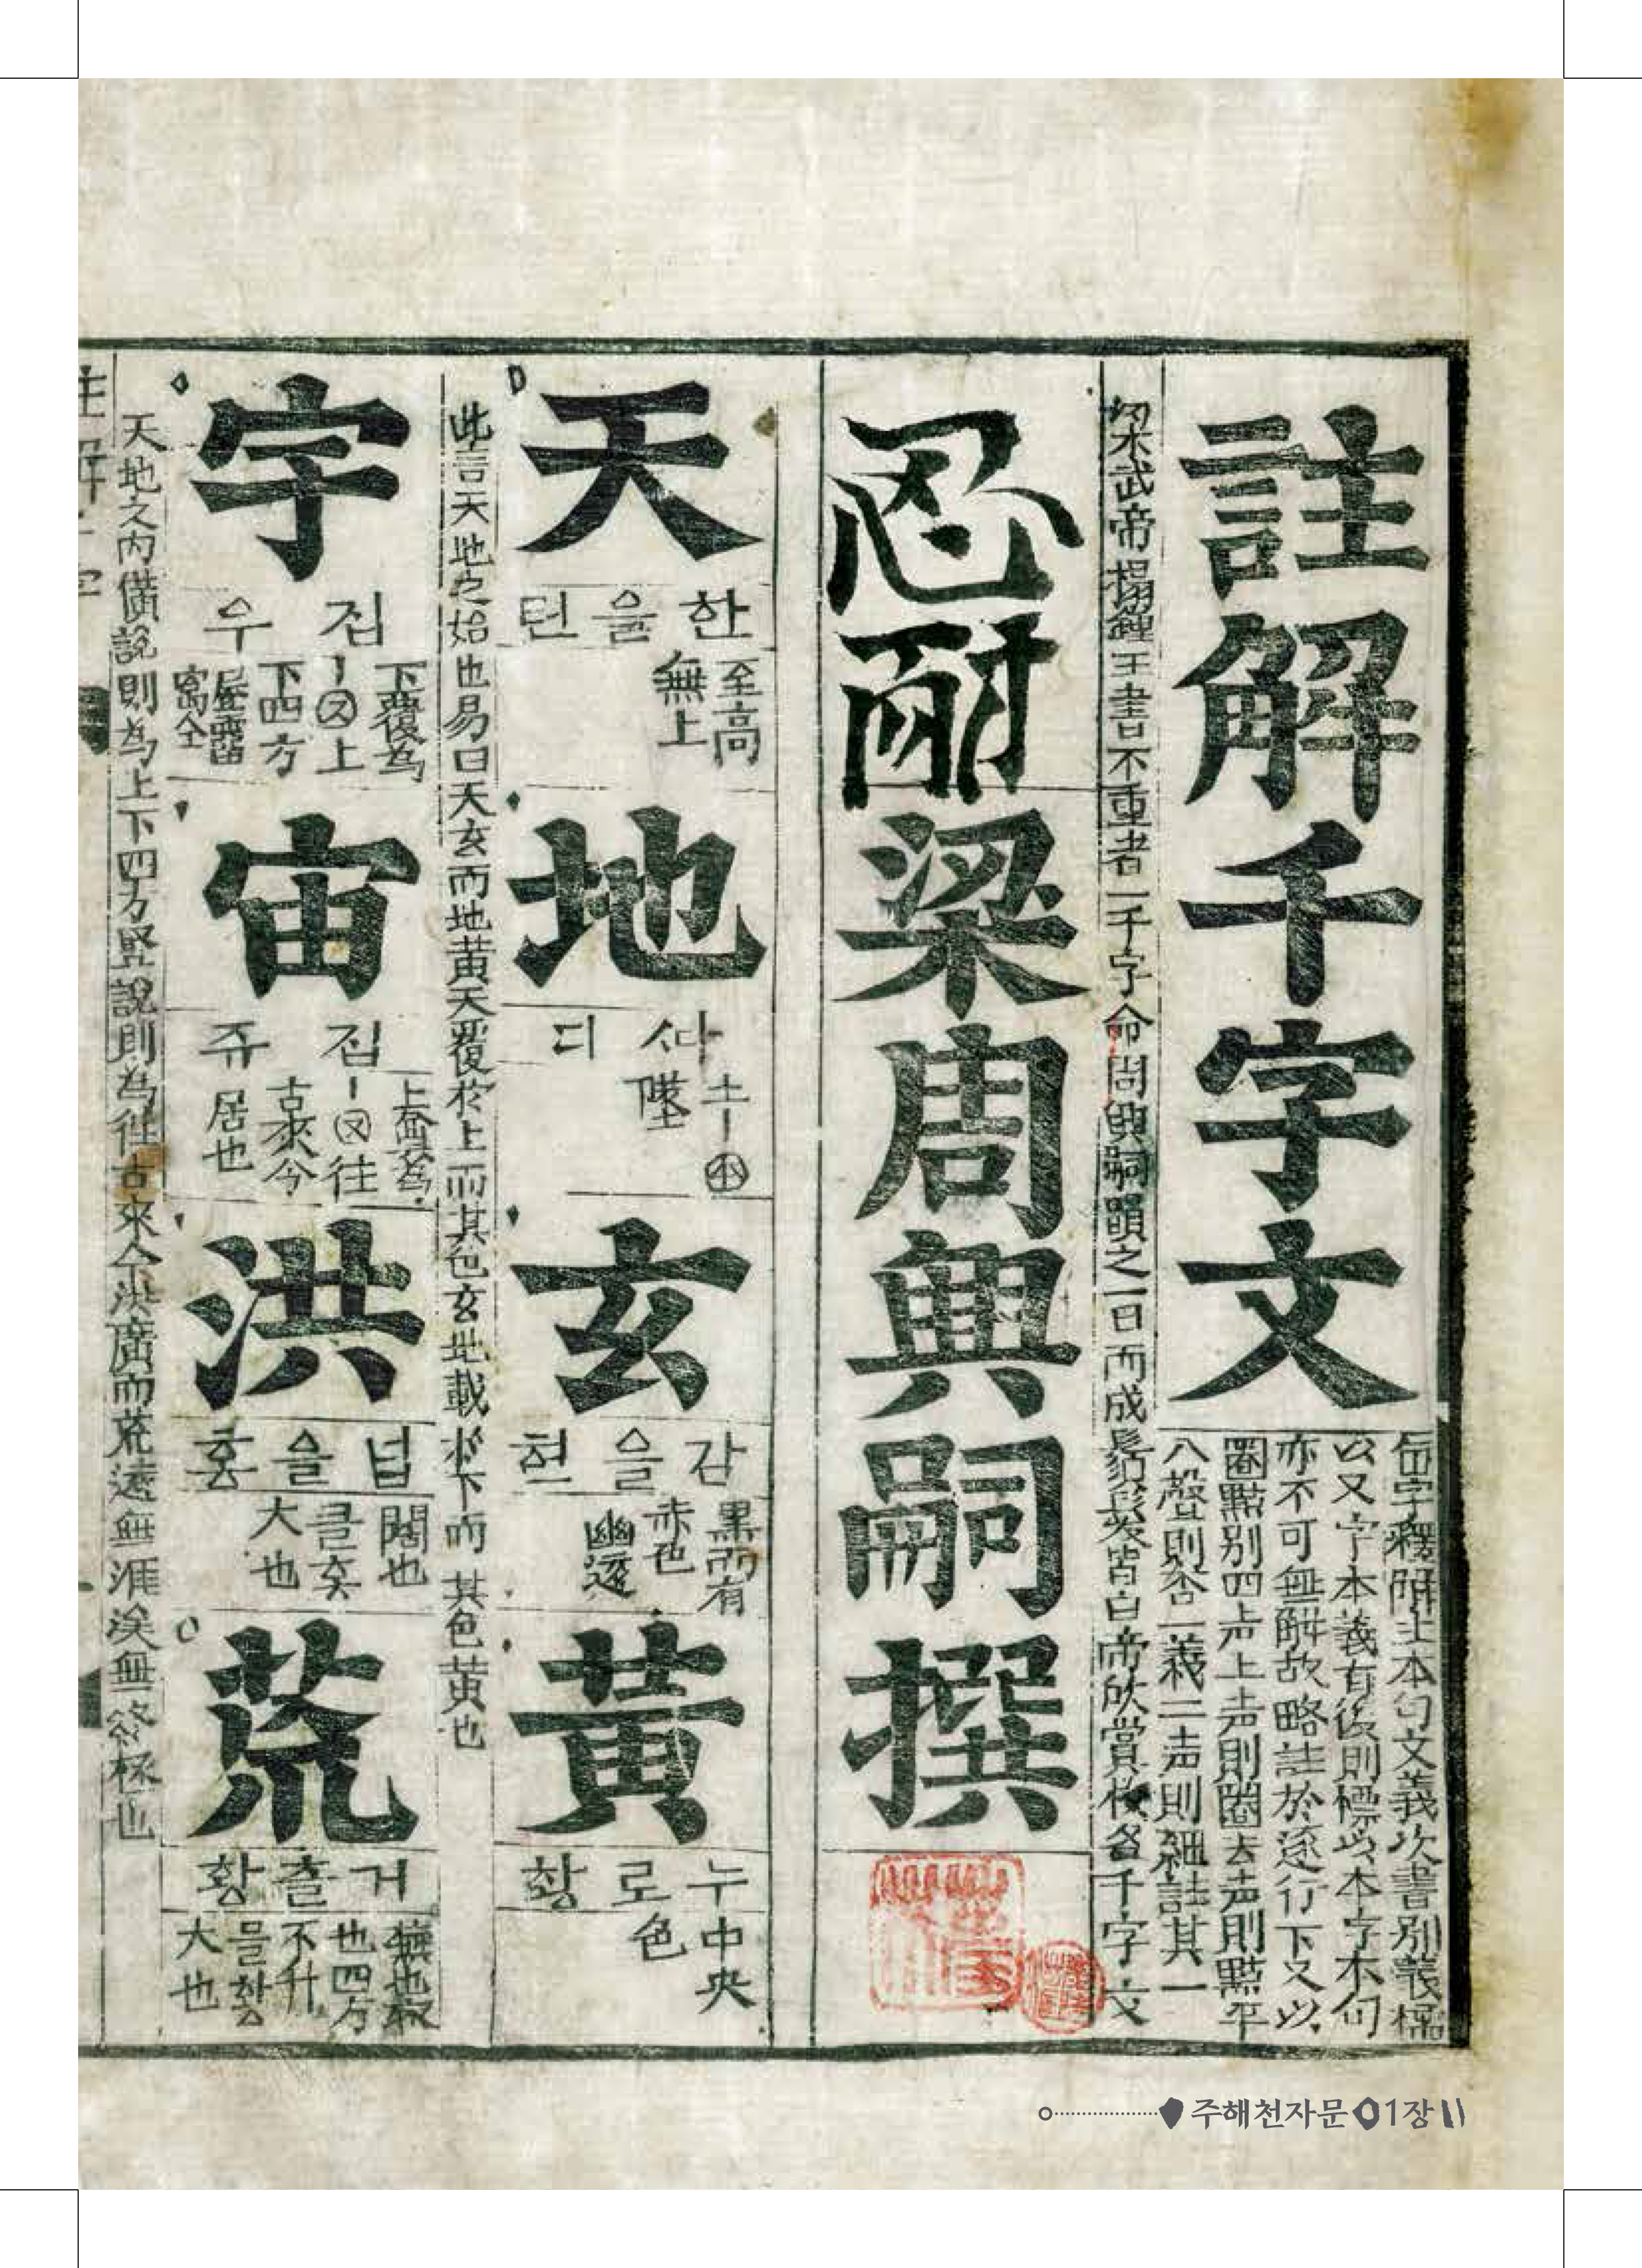 註解千字文
每字釋附註本句文義次書別義標
以又字本義有後則標以本字本句
亦不可無觧故略註於逐行下又以
圈點別四声上声則圈去声則點平
入聲則否一義二声則細註其一
梁武帝搨鍾王書不重者一千字命周興嗣韻之一日而成鬂髮皆白帝欣賞 名千字文
忍耐梁周興嗣撰
天
한을텬
至高
無上
地
ᄯᅡ디
土ㅣ
墬
玄
감을현
黑而有
赤色
幽遠
黃
누로황
中央
色
此言天地之始也易曰天玄而地黃天覆於上而其色玄地載於下而其色黃也
宇
집우
下覆為
ㅣ㊋上
下四方
屋霤
寓仝
宙
집쥬
上奠為
ㅣ㊋往
古來今
居也
洪
넙을홍
闊也
大也
荒
거츨황
也四方
不升
大也
天地之內橫說則為上下四方竪說則為往古來今洪廣而荒遠無涯涘無終極也
주해천자문 1장